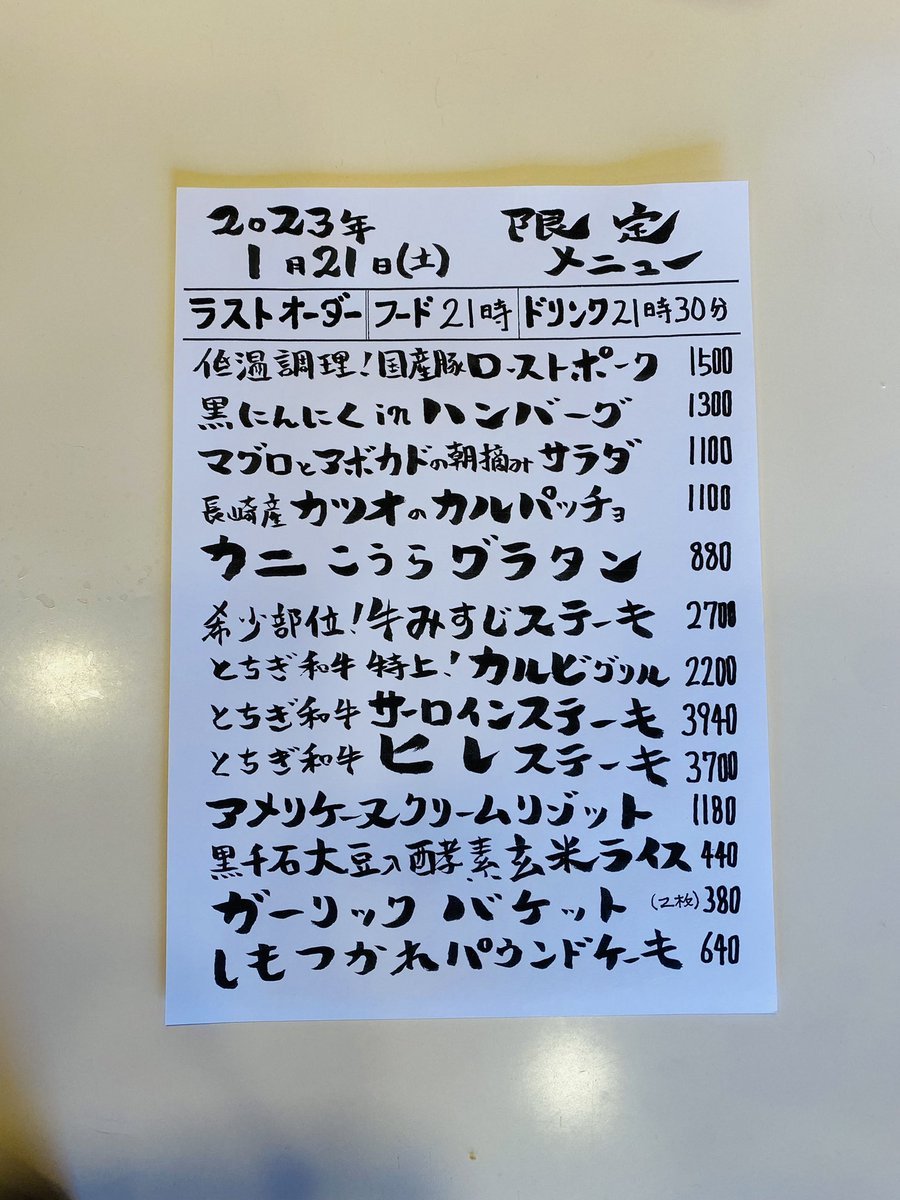 2023年 限定
1月21日(土) メニュー
ラストオーダー フード21時 ドリンク21時30分
低温調理!国産豚ローストポーク 1500
黒にんにくinハンバーグ 1300
マグロとアボカドの朝摘みサラダ 1100
長崎産カツオのカルパッチョ 1100
カニこうらグラタン 880
希少部位!牛みすじステーキ 2700
とちぎ和牛特上!カルビグリル 2200
とちぎ和牛サーロインステーキ 3940
とちぎ和牛ヒレステーキ 3700
アメリケーヌクリームリゾット 1180
黒千石大豆入酵素玄米ライス 440
ガーリックバケット(2枚) 380
しもつかれパウンドケーキ 640